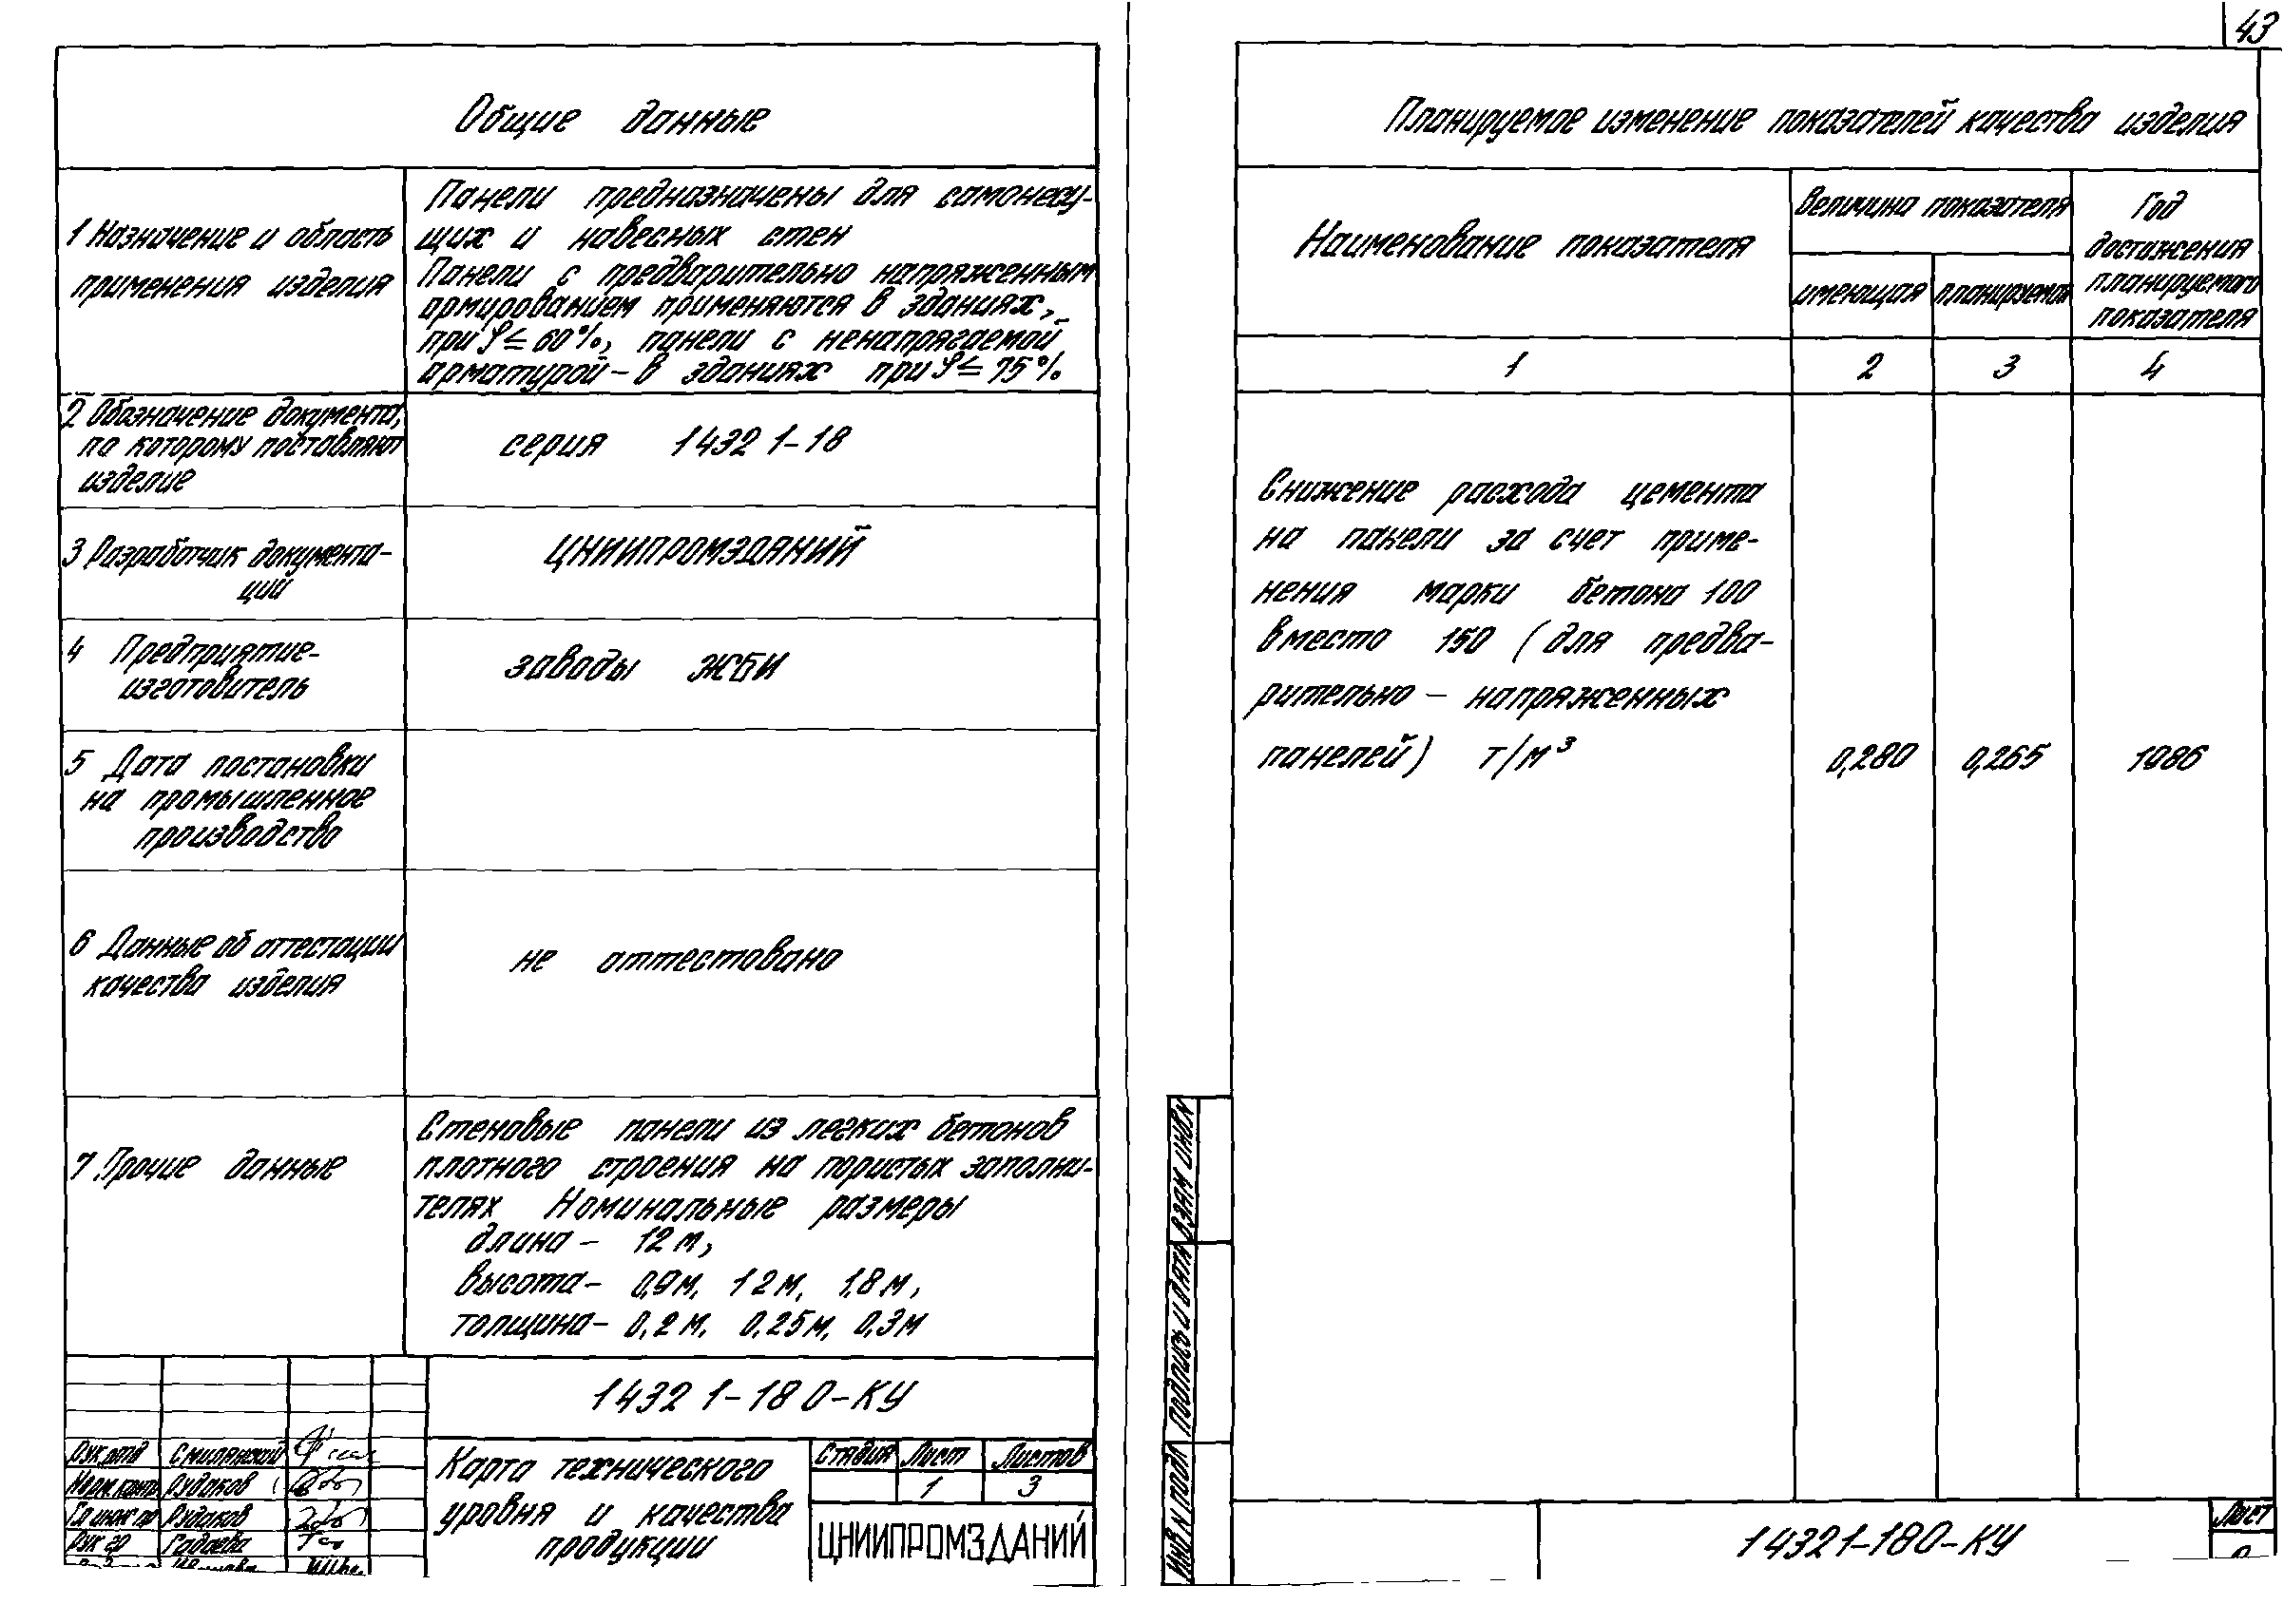 43
Общие данные
1 Назначение и область
применения изделия
Панели предназначены для самонесу-
щих и навесных стен
Панели с предварительно напряженным
армированием применяются в зданиях,
при φ ≤ 60%, панели с ненапрягаемой
арматурой – в зданиях при φ ≤ 75%
2 Обозначение документа,
по которому поставляют
изделие
серия 1432 1-18
3 Разработчик документа-
ции
ЦНИИПРОМЗДАНИЙ
4 Предприятие-
изготовитель
заводы ЖБИ
5 Дата постановки
на промышленное
производство
6 Данные об аттестации
качества изделия
не аттестовано
7 Прочие данные
Стеновые панели из легких бетонов
плотного строения на пористых заполни-
телях Номинальные размеры
длина – 12 м,
высота – 0,9 м, 1 2 м, 1,8 м,
толщина – 0,2 м, 0,25 м, 0,3 м
1432 1-18 0-КУ
Рук отд Смилянский
Норм.контр Рудаков
Гл инж пр Рудаков
Рук гр
Карта технического
уровня и качества
продукции
Стадия Лист Листов
1 3
ЦНИИПРОМЗДАНИЙ
Планируемое изменение показателей качества изделия
Наименование показателя
Величина показателя
имеющая планируемая
Год
достижения
планируемого
показателя
1 2 3 4
Снижение расхода цемента
на панели за счет приме-
нения марки бетона 100
вместо 150 (для предва-
рительно – напряженных
панелей) т/м³ 0,280 0,265 1986
Взам инв N
Подпись и дата
Инв N подл
1432 1-18 0-КУ
Лист